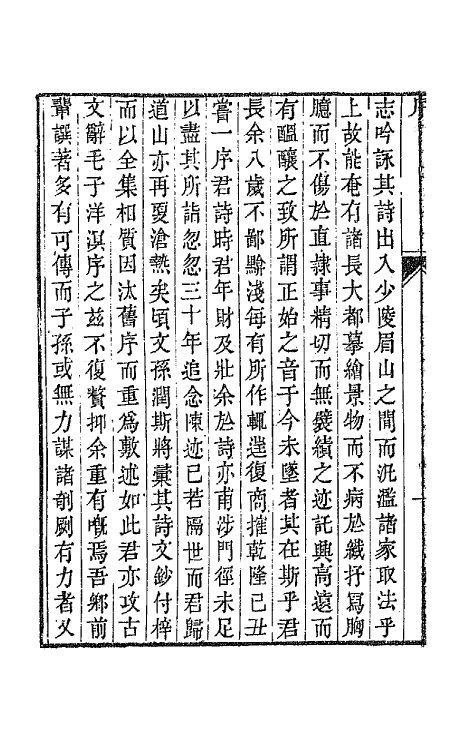 序
志吟詠其詩出入少陵眉山之間而汎濫諸家取法乎
上故能奄有諸長大都摹繪景物而不病於纖抒寫胸
臆而不傷於直隸事精切而無襞績之迹託興高遠而
有醞釀之致所謂正始之音于今未墜者其在斯乎君
長余八歲不鄙黭淺每有所作輒逹復商搉乾隆己丑
嘗一序君詩時君年財及壯余於詩亦甫涉門徑未足
以盡其所詣忽忽三十年追念陳迹已若隔世而君歸
道山亦再夏滄熱矣頃文孫潤斯將彚其詩文鈔付梓
而以全集相質因汰舊序而重爲敷述如此君亦攻古
文辭毛子洋溟序之兹不復贅抑余重有嘅焉吾鄉前
輩譔著多有可傳而子孫或無力謀諸剞劂有力者又